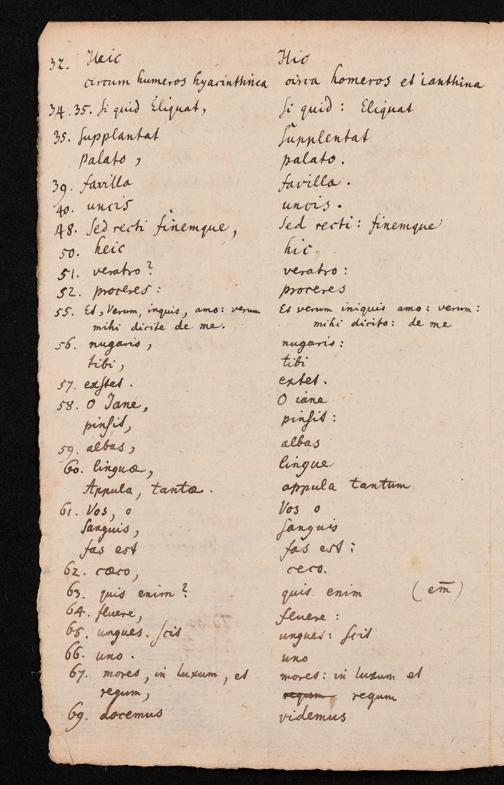 32. Heic Hic
circum humeros hyacinthina circa homeros et ianthina
34.35. Si quid Eliquat, Si quid: Eliquat
35. Supplantat Supplentat
palato, palato.
39. favilla favilla.
40. uncis uncis.
48. Sed recti finemque, Sed recti: finemque
50. heic hic
51. veratro? veratro:
52. proceres: proceres
55. Et, Verum, inquis, amo: verum Et verum iniquis amo: verum:
mihi dicite de me. mihi dicito: de me
56. nugaris, nugaris:
tibi, tibi
57. exstet. extet.
58. O Iane, O iane
pinsit, pinsit:
59. albas, albas
60. linguæ, lingue
Appula, tantæ. appula tantum
61. Vos, o Vos o
Sanguis, Sanguis
fas est fas est:
62. cæco, ceco.
63. quis enim? quis enim (em̄)
64. fluere, fluere:
65. ungues. Scit ungues: Scit
66. uno. uno
67. mores, in luxum, et mores: in luxum et
regum, regum regum
69. docemus videmus